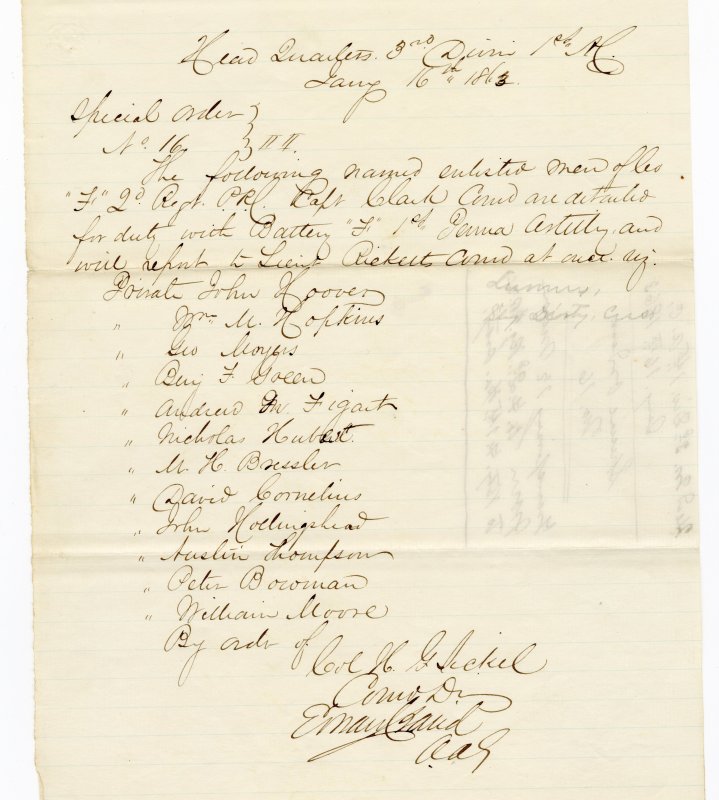 Head Quarters. 3rd Divin 1st AC.
Jany 16th 1863
Special order }
No. 16 } II II.
The following named enlisted men of Co
"F" 2d Regt. P.R.C. Capt Clark Comd are detailed
for duty with Battery "F" 1st Penna Artilly. and
will report to Lieut Ricketts Comd at once. viz.
Private John Hoover
" Wm M. Hopkins
" Geo Moyers
" Benj F. Green
" Andrew M. Figart
" Nicholas Hubert.
" M. H. Bressler
" David Cornelius
" John Hollingshead
" Austin Thompson
" Peter Bowman
" William Moore
By order of
Col H. G. Sickel
Comd Div
A.A.G